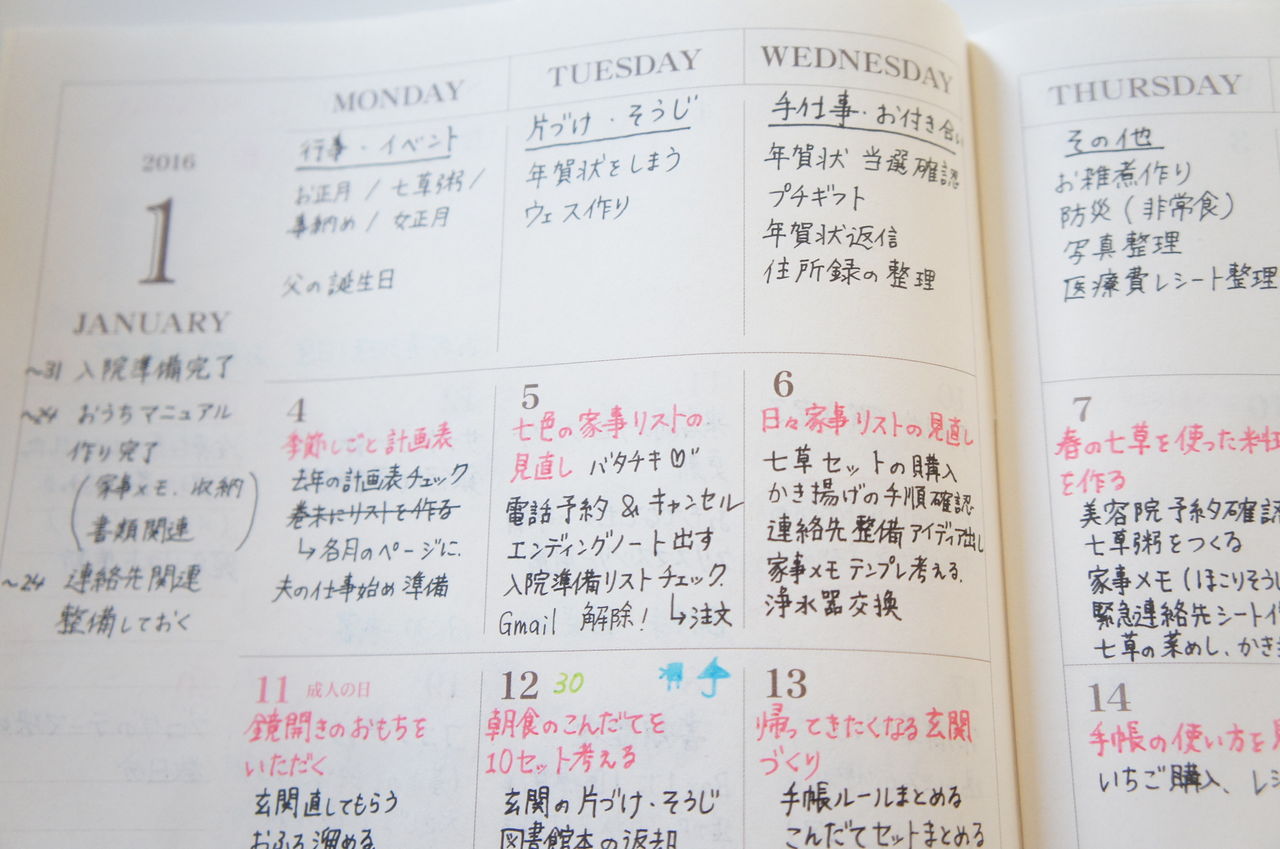 MONDAY
TUESDAY
WEDNESDAY
THURSDAY
2016
1
JANUARY
~31 入院準備完了
~24 おうちマニュアル
作り完了
(家事メモ、収納
書類関連)
~24 連絡先関連
整備しておく
行事・イベント
お正月 / 七草粥 /
事納め / 女正月
父の誕生日
片づけ・そうじ
年賀状をしまう
ウェス作り
手仕事・お付き合い
年賀状 当選確認
プチギフト
年賀状返信
住所録の整理
その他
お雑煮作り
防災(非常食)
写真整理
医療費レシート整理
4
季節しごと計画表
去年の計画表チェック
巻末にリストを作る
↳各月のページに.
夫の仕事始め準備
5
七色の家事リストの
見直し バタチキ♡
電話予約 & キャンセル
エンディングノート出す
入院準備リストチェック.
Gmail 解除! ↳注文
6
日々家事リストの見直し
七草セットの購入
かき揚げの手順確認
連絡先整備アイディア出し
家事メモ テンプレ考える.
浄水器交換
7
春の七草を使った料
を作る
美容院予約確認
七草粥をつくる
家事メモ(ほこりそうじ
緊急連絡先シート作
七草の菜めし、かき
11 成人の日
鏡開きのおもちを
いただく
玄関直してもらう
おふろ溜める
12 30
朝食のこんだてを
10セット考える
玄関の片づけ・そうじ
図書館本の返却
13
帰ってきたくなる玄関
づくり
手帳ルールまとめる
こんだてセットまとめる
14
手帳の使い方を見
いちご購入、レシ